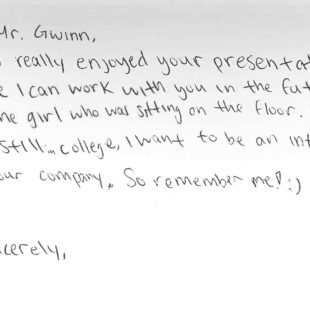 Mr. Gwinn,
really enjoyed your presentat
I can work with you in the fut
girl who was sitting on the floor.
still... college, I want to be an int
our company. So remember me! :)
cerely,